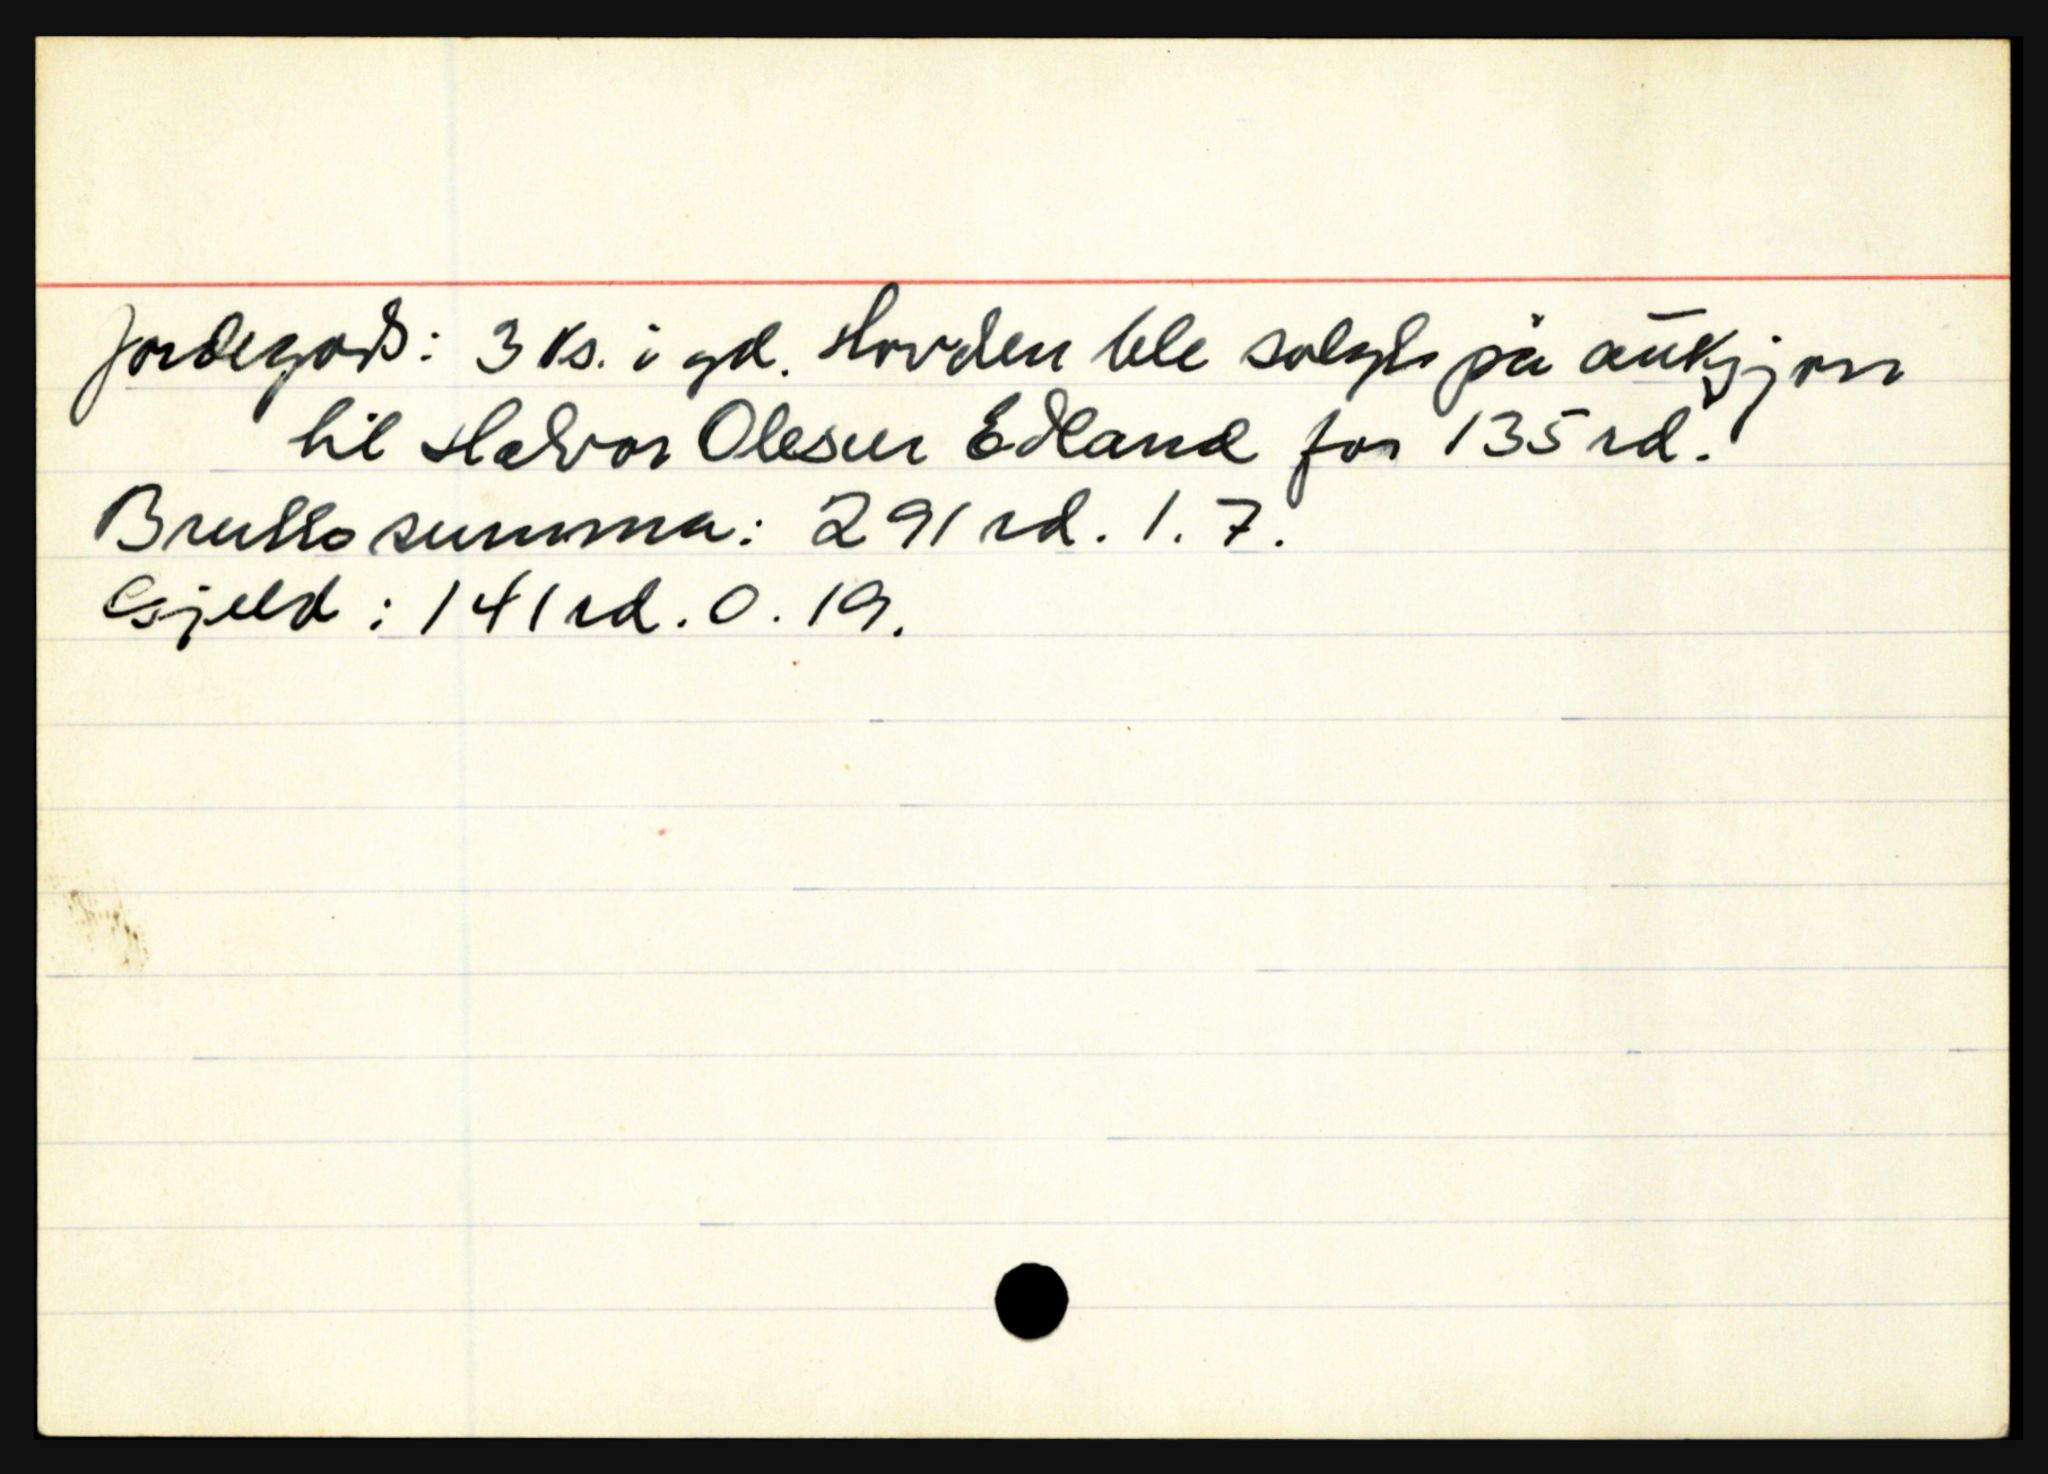 Jordegods: 3 ks. i gd. Hovden ble solgt på auksjon
til Halvor Olesen Edland for 135 rd.
Bruttosumma: 291 rd. 1. 7.
Gjeld: 141 rd. 0. 19.